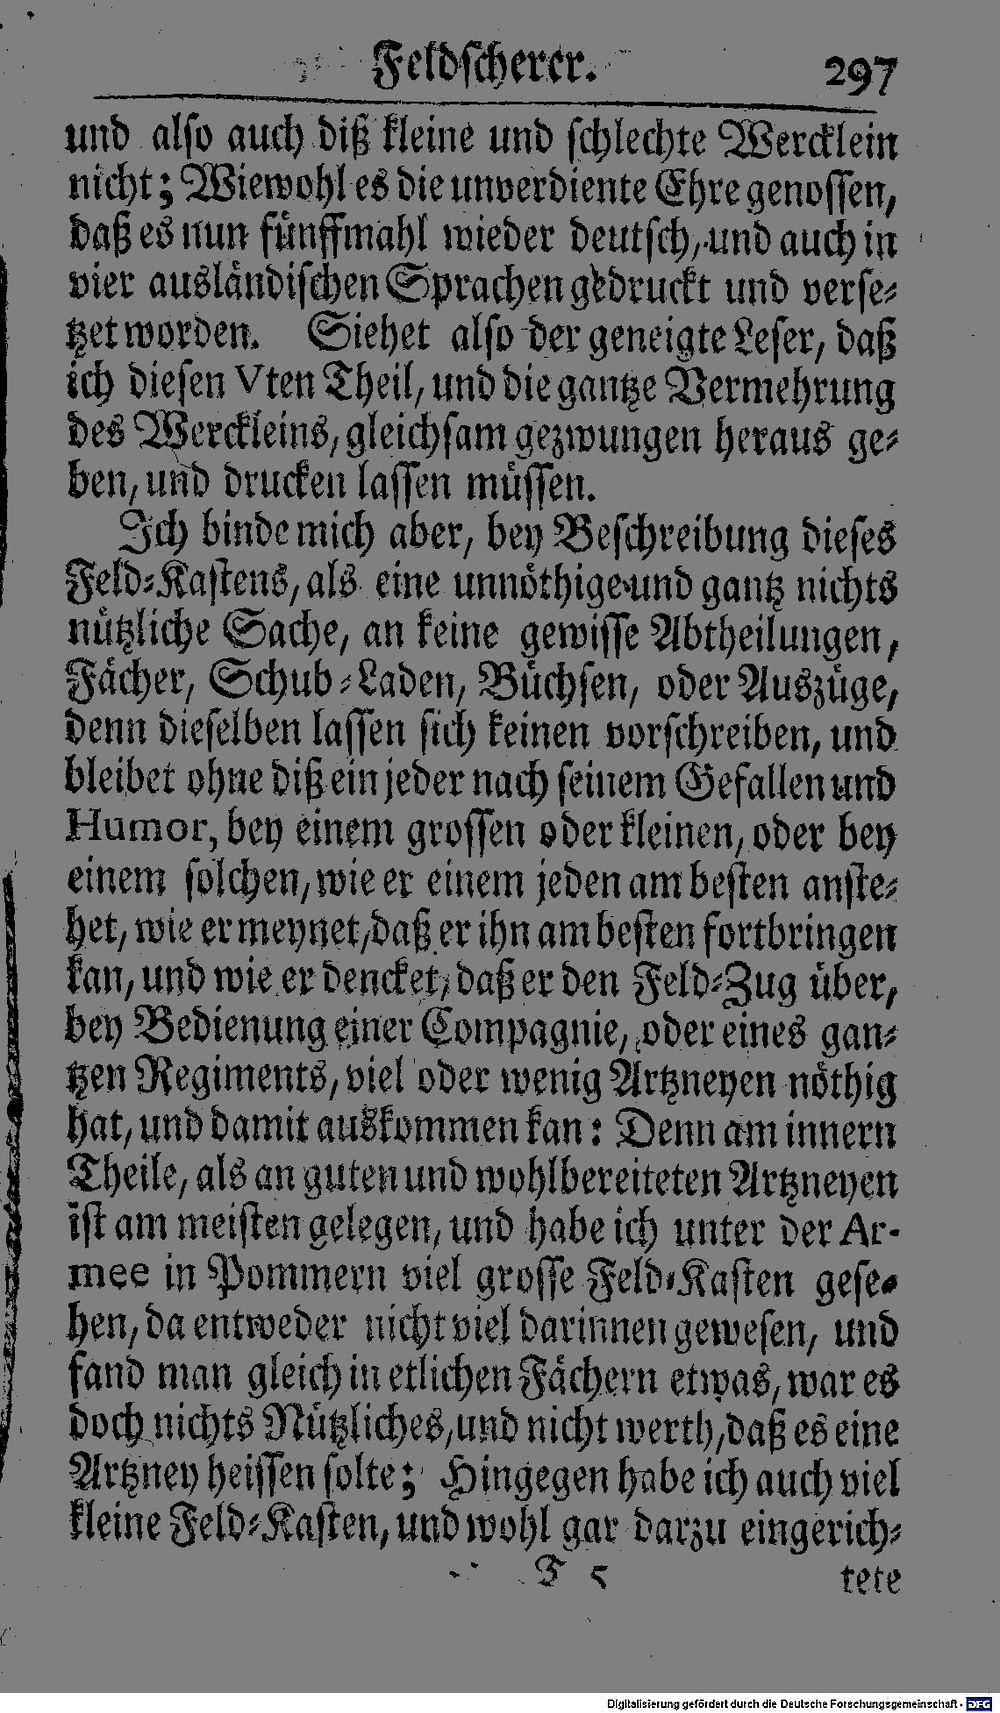 Feldscherer. 297
und also auch diß kleine und schlechte Wercklein
nicht; Wiewohl es die unverdiente Ehre genossen,
daß es nun fünffmahl wieder deutsch, und auch in
vier ausländischen Sprachen gedruckt und verse-
tzet worden. Siehet also der geneigte Leser, daß
ich diesen Vten Theil, und die gantze Vermehrung
des Werckleins, gleichsam gezwungen heraus ge-
ben, und drucken lassen müssen.
Ich binde mich aber, bey Beschreibung dieses
Feld-Kastens, als eine unnöthige und gantz nichts
nützliche Sache, an keine gewisse Abtheilungen,
Fächer, Schub-Laden, Büchsen, oder Auszüge,
denn dieselben lassen sich keinen vorschreiben, und
bleibet ohne diß ein jeder nach seinem Gefallen und
Humor, bey einem grossen oder kleinen, oder bey
einem solchen, wie er einem jeden am besten anste-
het, wie er meynet, daß er ihn am besten fortbringen
kan, und wie er dencket, daß er den Feld-Zug über,
bey Bedienung einer Compagnie, oder eines gan-
tzen Regiments, viel oder wenig Artzneyen nöthig
hat, und damit auskommen kan: Denn am innern
Theile, als an guten und wohlbereiteten Artzneyen
ist am meisten gelegen, und habe ich unter der Ar-
mee in Pommern viel grosse Feld-Kasten gese-
hen, da entweder nicht viel darinnen gewesen, und
fand man gleich in etlichen Fächern etwas, war es
doch nichts Nützliches, und nicht werth, daß es eine
Artzney heissen solte; Hingegen habe ich auch viel
kleine Feld-Kasten, und wohl gar darzu eingerich-
T 5 tete
Digitalisierung gefördert durch die Deutsche Forschungsgemeinschaft - DFG